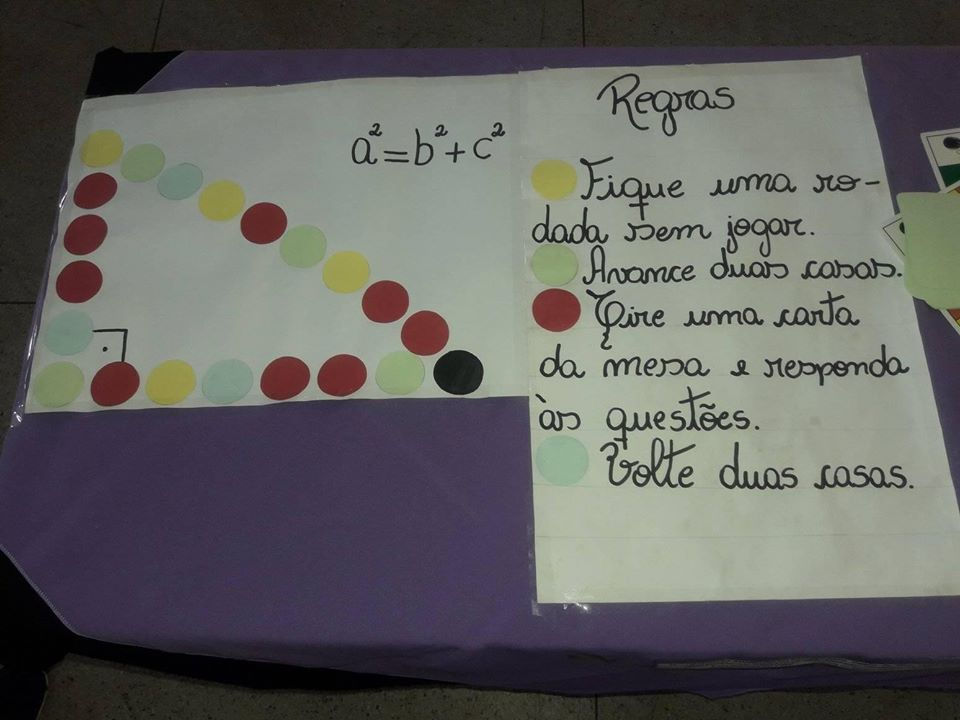 a² = b² + c²
Regras
Fique uma ro-
dada sem jogar.
Avance duas casas.
Tire uma carta
da mesa e responda
às questões.
Volte duas casas.